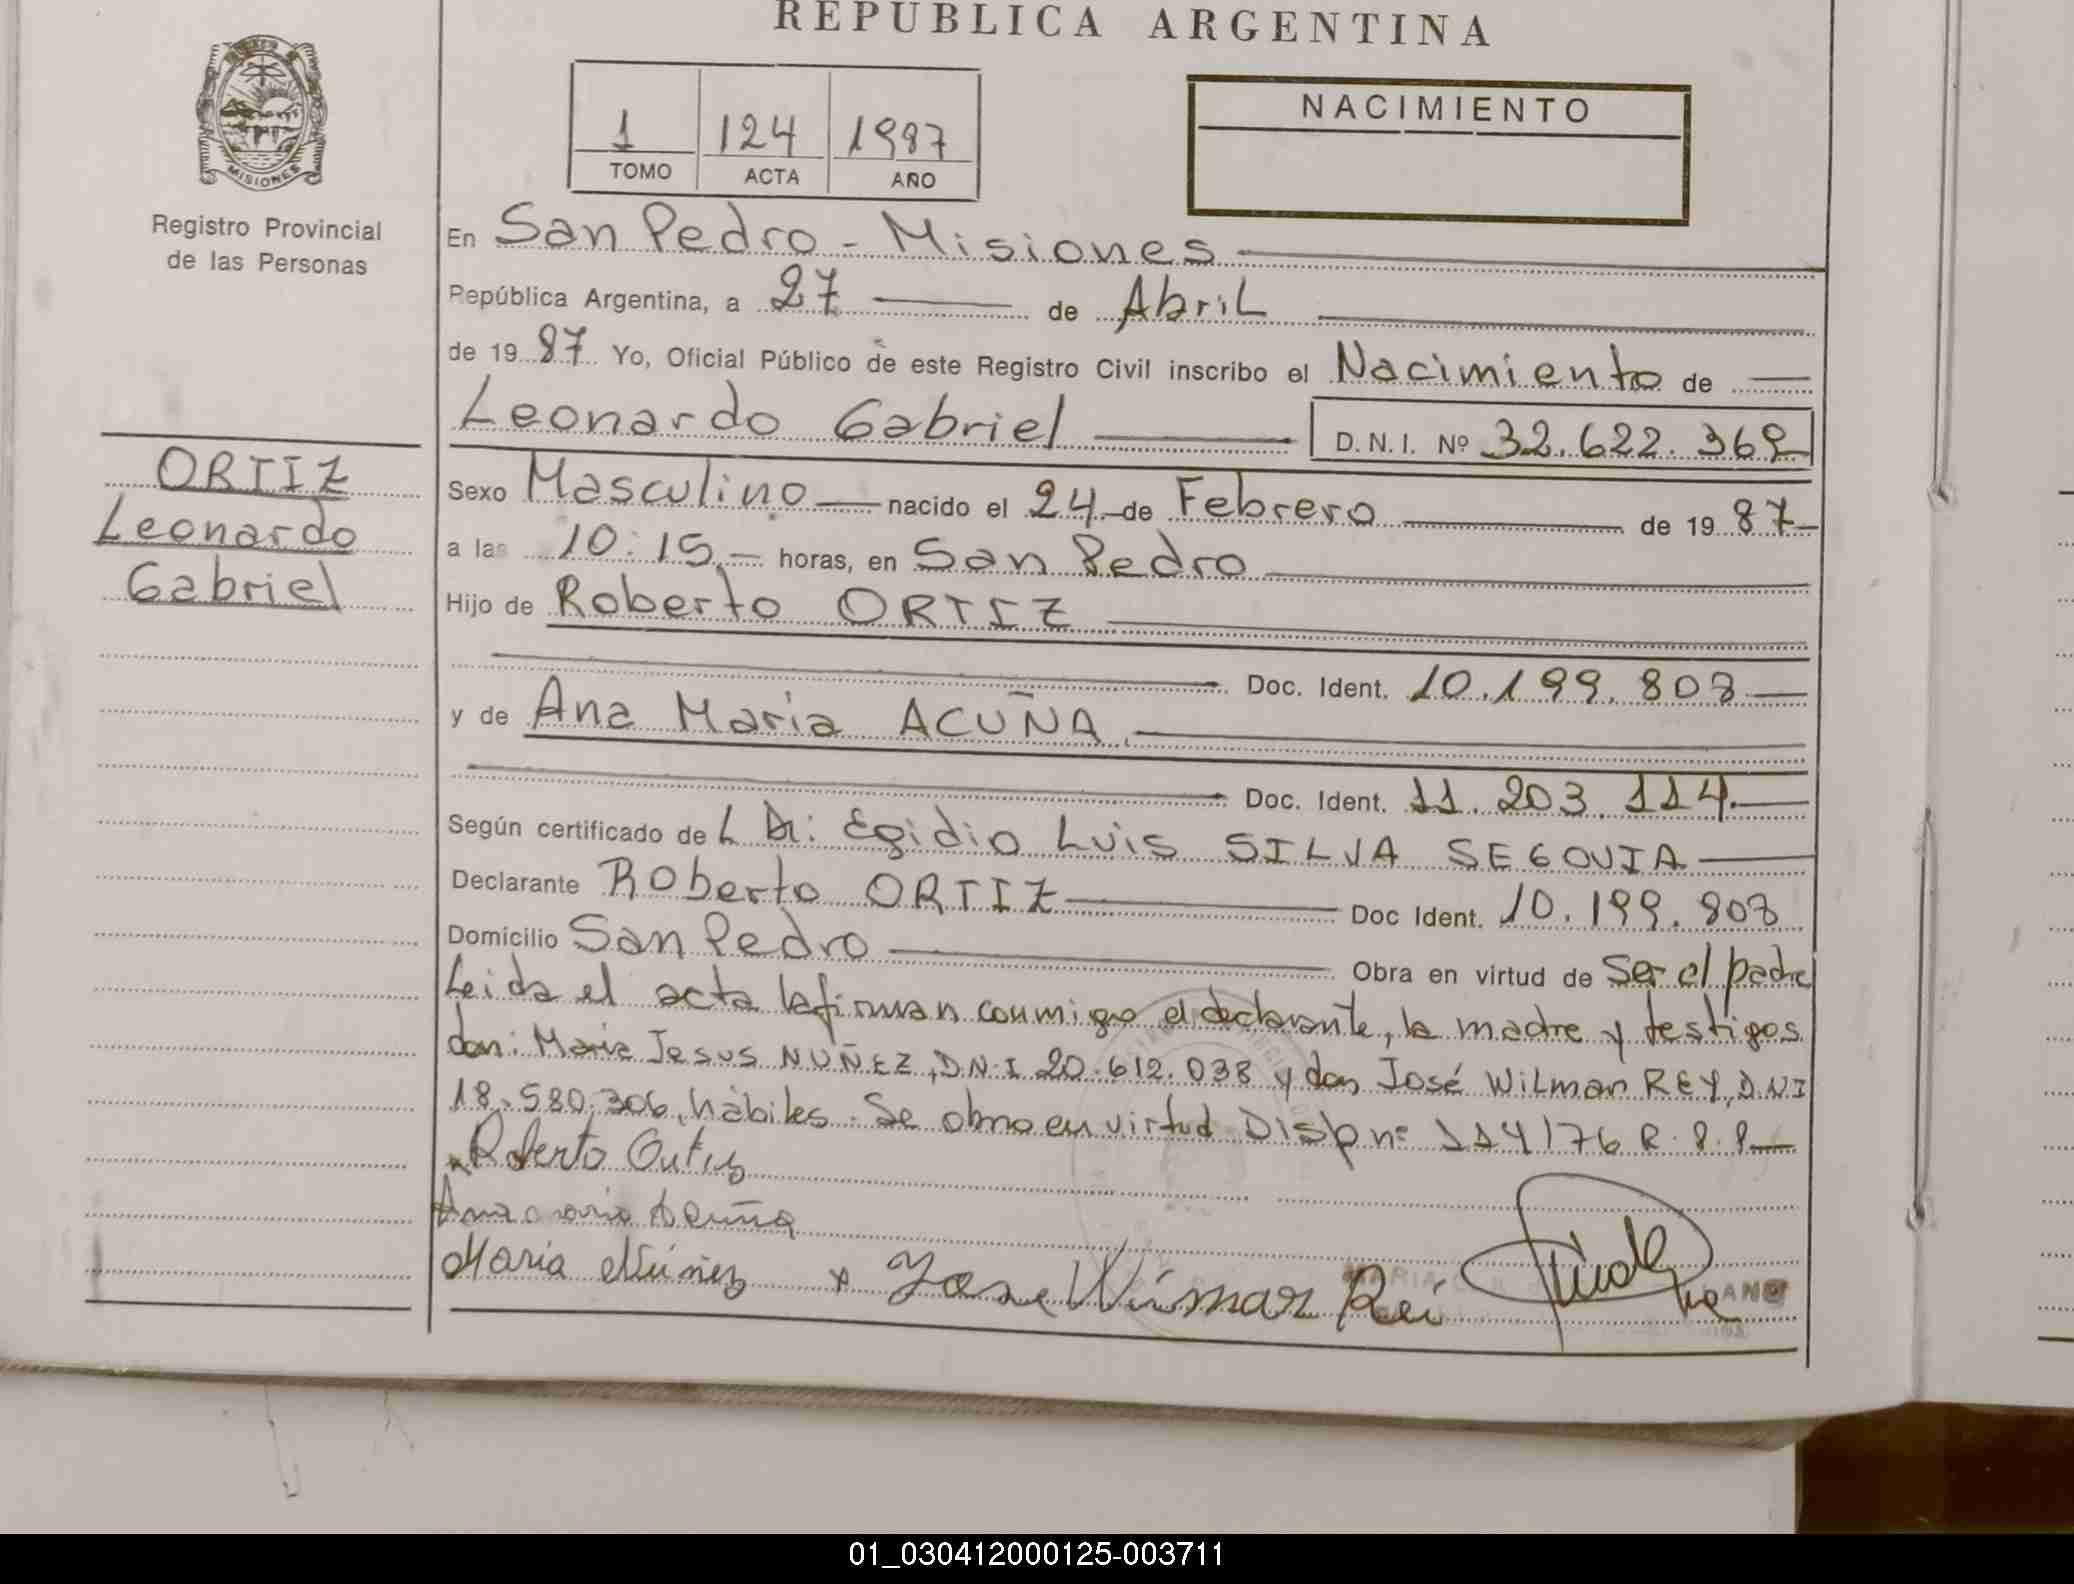 REPUBLICA ARGENTINA
MISIONES
Registro Provincial
de las Personas
1 124 1987
TOMO ACTA AÑO
NACIMIENTO
En San Pedro - Misiones
República Argentina, a 27 de Abril
de 19 87 Yo, Oficial Público de este Registro Civil inscribo el Nacimiento de
Leonardo Gabriel D.N.I. Nº 32.622.362
ORTIZ
Leonardo
Gabriel
Sexo Masculino nacido el 24 de Febrero de 19 87
a las 10:15 horas, en San Pedro
Hijo de Roberto ORTIZ
Doc. Ident. 10.199.808
y de Ana Maria ACUÑA
Doc. Ident. 11.203.114
Según certificado del Dr: Egidio Luis SILVA SEGOVIA
Declarante Roberto ORTIZ Doc Ident. 10.199.808
Domicilio San Pedro Obra en virtud de Ser el padre
Leida el acta la firman conmigo el declarante, la madre y testigos
don: Maria Jesus NUÑEZ, D.N.I 20.612.038 y don José Wilmar REY, D.N.I
18.580.306, hábiles. Se obra en virtud Disp nº 114/76 R.P.P.
Roberto Ortiz
Ana maria Acuña
Maria Núñez x Jose Wilmar Rei
01_030412000125-003711